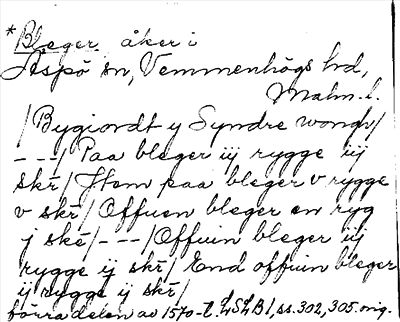 *Bleger, åker i
Aspö sn, Vemmenhögs hd,
Malm. l.
/Bygiordt y Syndre wongh/
---/Paa bleger iij rygge iij
skr̄/Item paa bleger v rygge
v skr̄/Offuen bleger en ryg
j skē/---/Offuin bleger iij
rygge ij skr̄/End offuin bleger
ij rygge ij skr̄/
förra delen av 1570-t. LSLB 1, ss. 302, 305. orig.